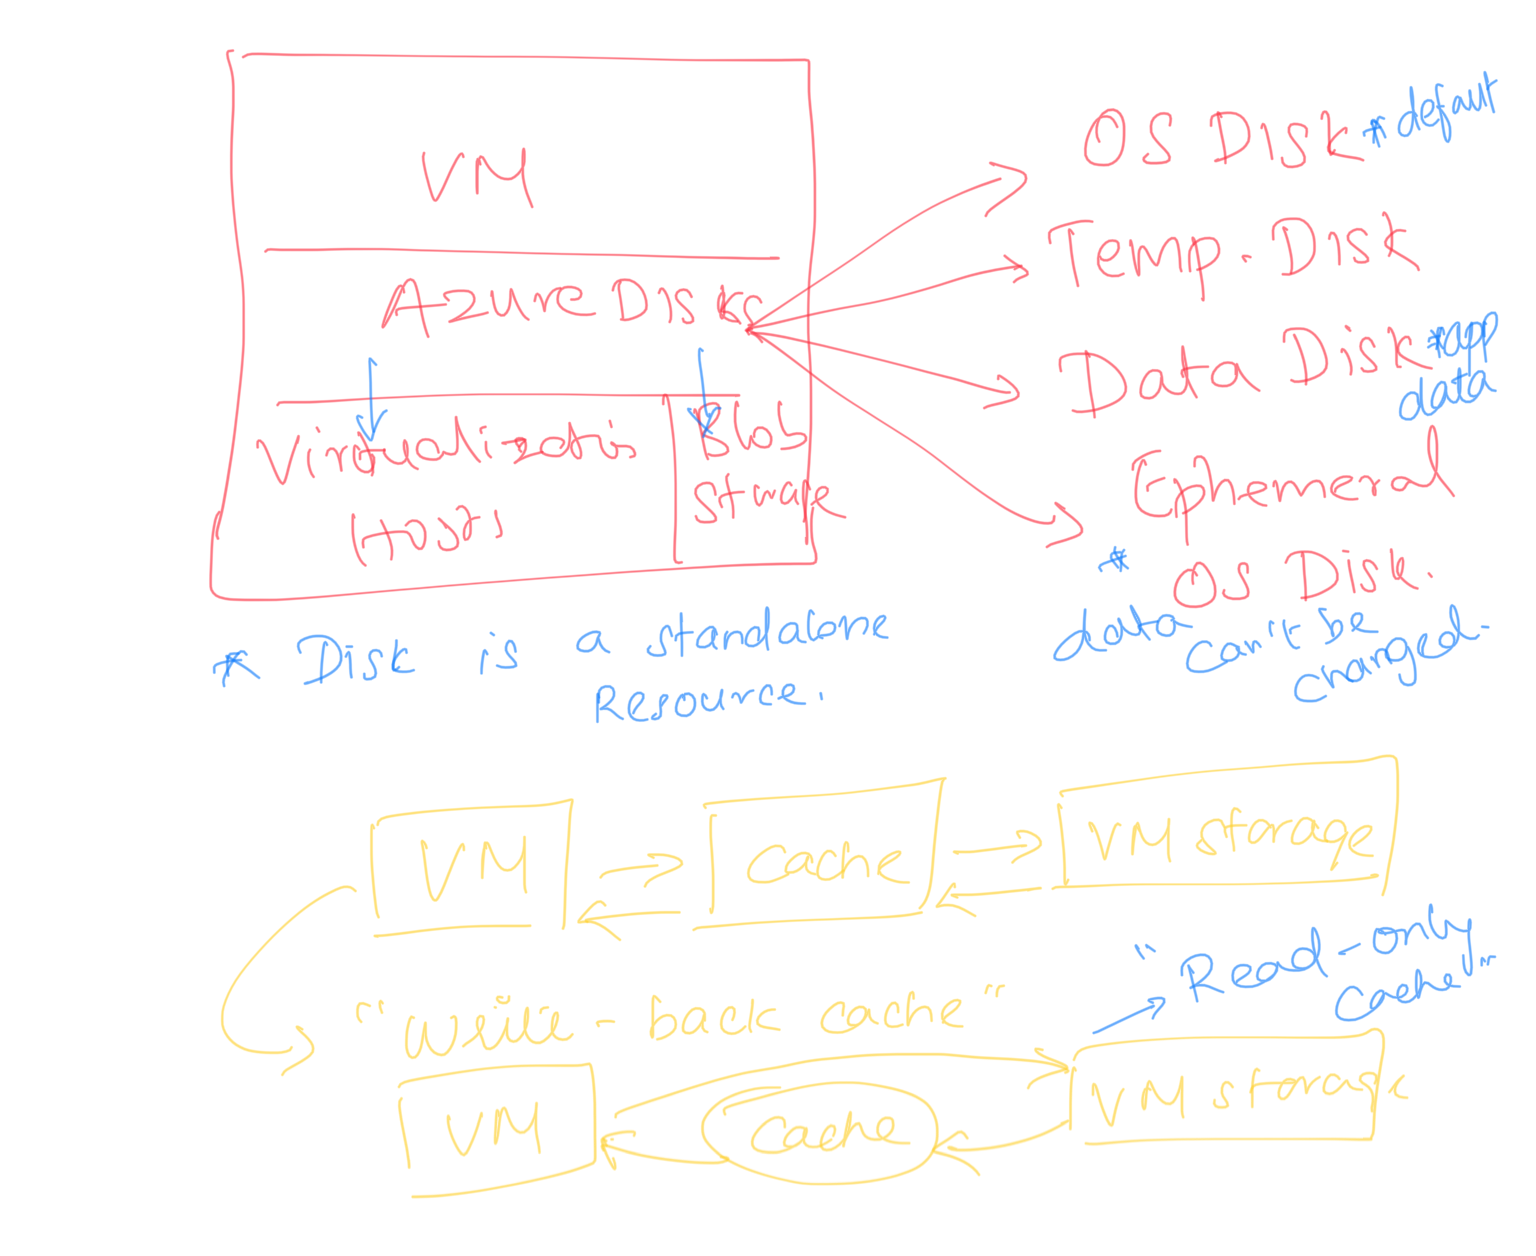 VM
Azure Disks
Virtualization
Hosts
Blob
Storage
OS Disk * default
Temp. Disk
Data Disk * app
data
Ephemeral
OS Disk.
* data can't be
changed.
* Disk is a standalone
Resource.
VM
Cache
VM storage
"write-back cache"
"Read-only
Cache"
VM
Cache
VM storage